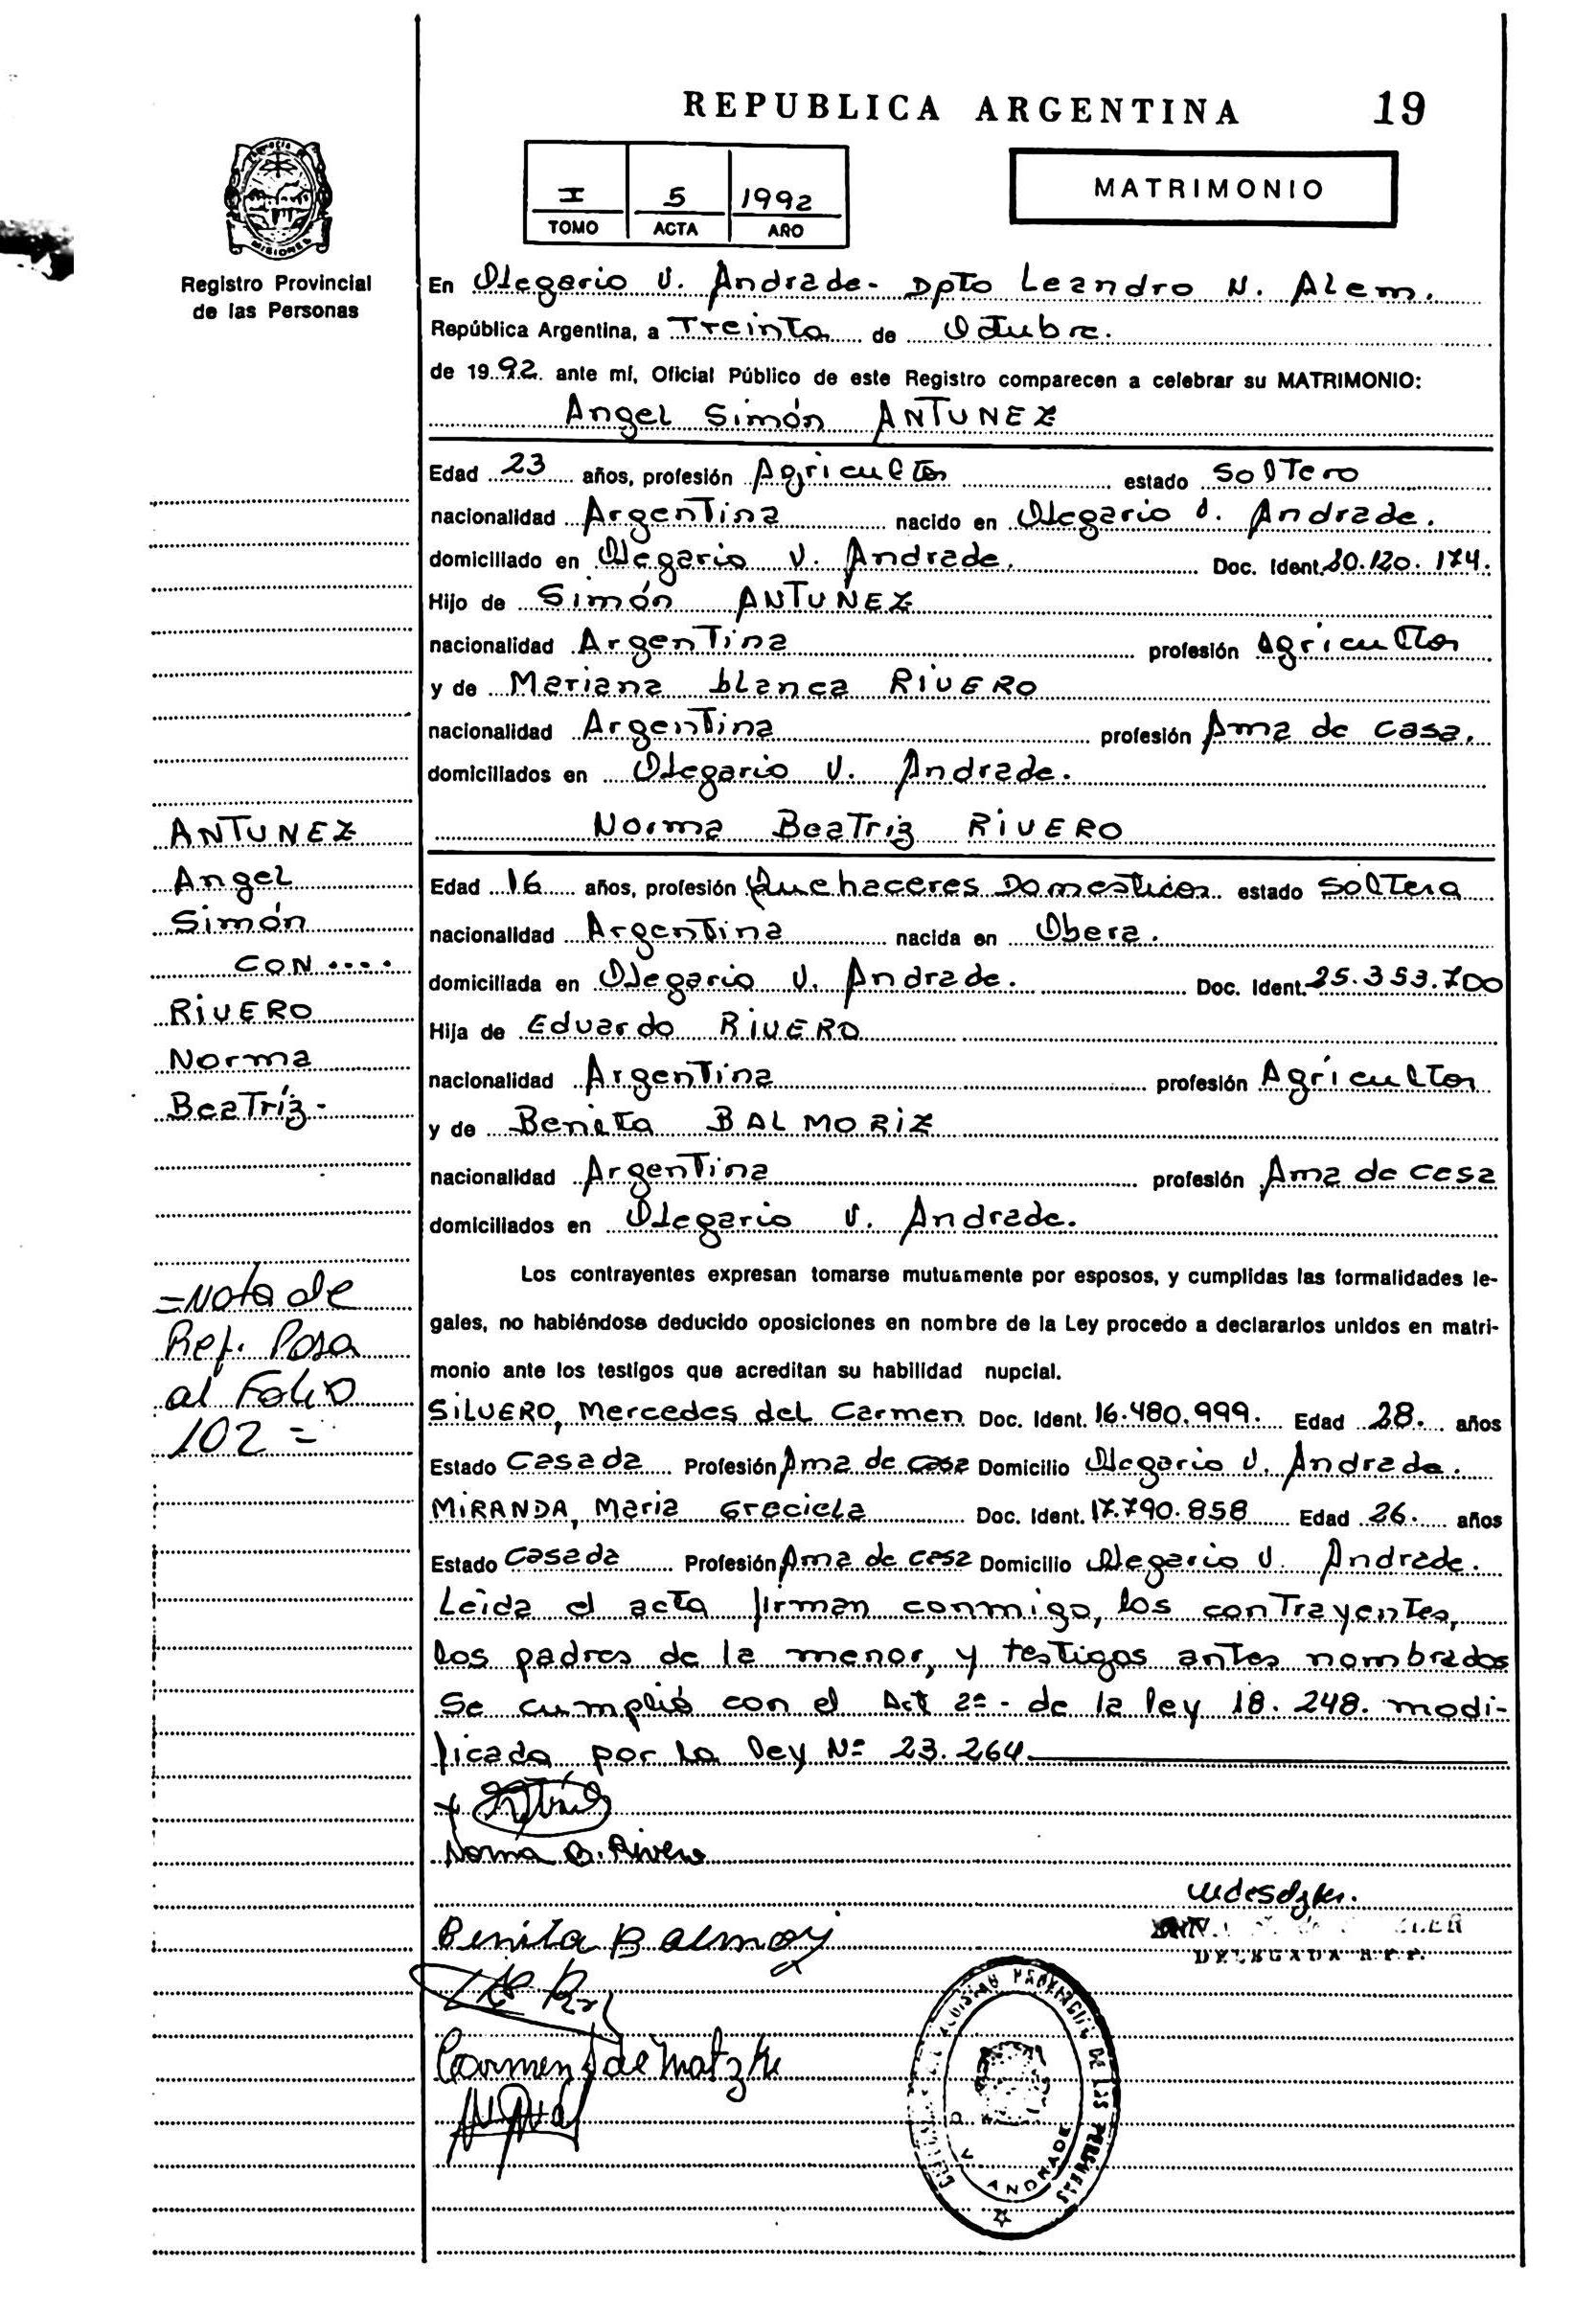 REPUBLICA ARGENTINA 19
I 5 1992
TOMO ACTA AÑO
MATRIMONIO
MISIONES
Registro Provincial
de las Personas
En Olegario V. Andrade- Dpto Leandro N. Alem.
República Argentina, a Treinta de Octubre.
de 1992. ante mí, Oficial Público de este Registro comparecen a celebrar su MATRIMONIO:
Angel Simón ANTUNEZ
Edad 23 años, profesión Agricultor estado Soltero
nacionalidad Argentina nacido en Olegario V. Andrade.
domiciliado en Olegario V. Andrade. Doc. Ident. 20.120.174.
Hijo de Simón ANTUNEZ
nacionalidad Argentina profesión Agricultor
y de Mariana blanca RIVERO
nacionalidad Argentina profesión Ama de casa.
domiciliados en Olegario V. Andrade.
Norma Beatriz RIVERO
Edad 16 años, profesión Quehaceres Domesticos estado Soltera
nacionalidad Argentina nacida en Obera.
domiciliada en Olegario V. Andrade. Doc. Ident. 25.353.700
Hija de Eduardo RIVERO
nacionalidad Argentina profesión Agricultor
y de Benita BALMORIZ
nacionalidad Argentina profesión Ama de casa
domiciliados en Olegario V. Andrade.
ANTUNEZ
Angel
Simón
CON ....
RIVERO
Norma
Beatríz-
=Nota de
Ref. Pasa
al Folio
102=
Los contrayentes expresan tomarse mutuamente por esposos, y cumplidas las formalidades le-
gales, no habiéndose deducido oposiciones en nombre de la Ley procedo a declararlos unidos en matri-
monio ante los testigos que acreditan su habilidad nupcial.
SILVERO, Mercedes del Carmen Doc. Ident. 16.480.999. Edad 28. años
Estado Casada Profesión Ama de casa Domicilio Olegario V. Andrade.
MIRANDA, Maria Graciela Doc. Ident. 17.790.858 Edad 26. años
Estado Casada Profesión Ama de casa Domicilio Olegario V. Andrade.
Leida el acta firman conmigo, los contrayentes,
los padres de la menor, y testigos antes nombrados
Se cumplió con el Act 2º- de la ley 18.248. modi-
ficada por la ley Nº 23.264.
Norma B. Rivero
Benita Balmoy
DELEGADA R.P.P.
Carmen S de Matzke
PROVINCIAL DE LAS PERSONAS
V ANDRADE